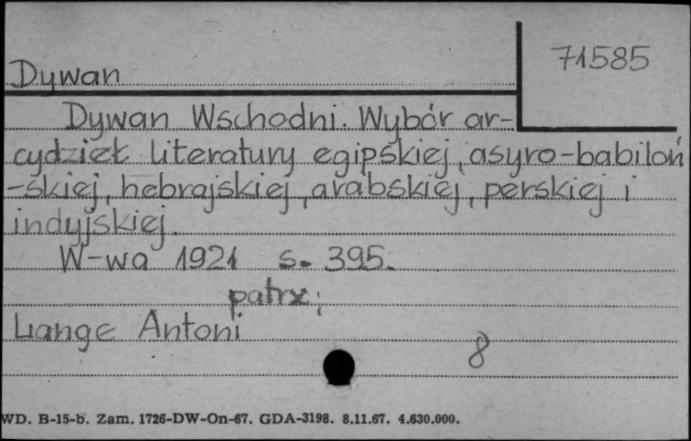 71585
Dywan
Dywan Wschodni. Wybór ar-
cydzieł literatury egipskiej, asyro-babiloń
-skiej, hebrajskiej, arabskiej, perskiej i
indyjskiej.
W-wa 1921 s. 395.
patrz:
Lange Antoni
8
WD. B-15-b. Zam. 1726-DW-On-67. GDA-3198. 8.11.67. 4.630.000.